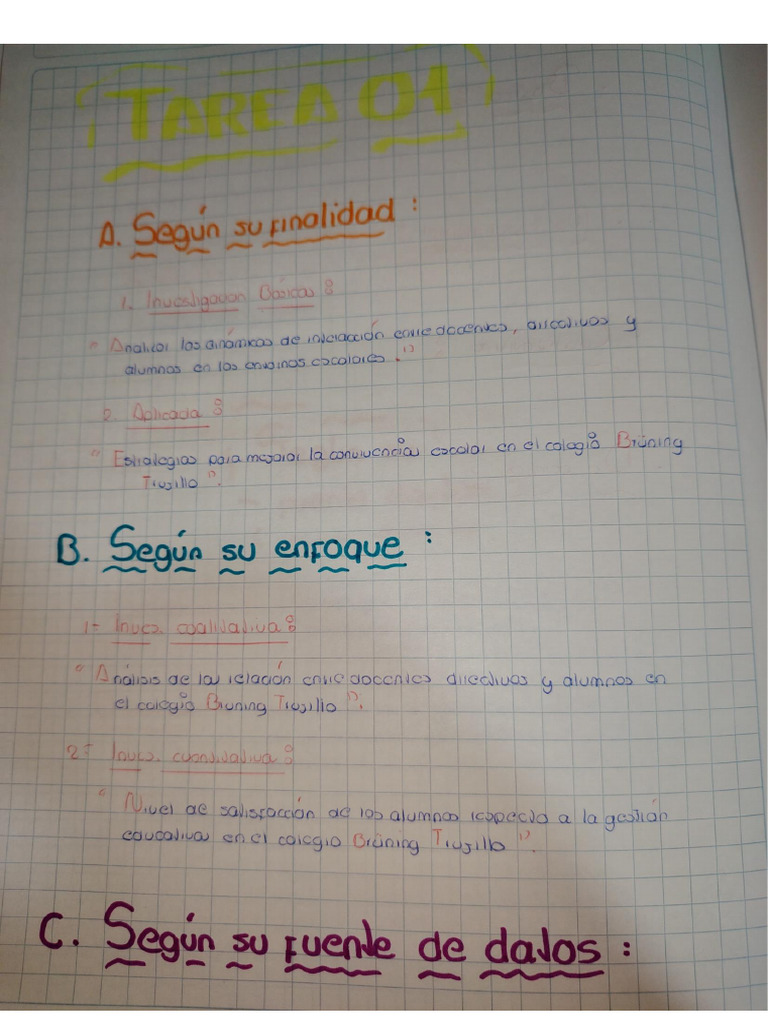 TAREA 01
A. Según su finalidad :
1. Investigación Básicas :
"Analizar las dinámicas de interacción entre docentes, directivos y
alumnos en los entornos escolares."
2. Aplicada :
"Estrategias para mejorar la convivencia escolar en el colegio Brüning
Trujillo".
B. Según su enfoque :
1- Inves. cualitativa :
"Análisis de la relación entre docentes directivos y alumnos en
el colegio Bruning Trujillo".
2- Inves. cuantitativa :
"Nivel de satisfacción de los alumnos respecto a la gestión
educativa en el colegio Brüning Trujillo".
C. Según su fuente de datos :